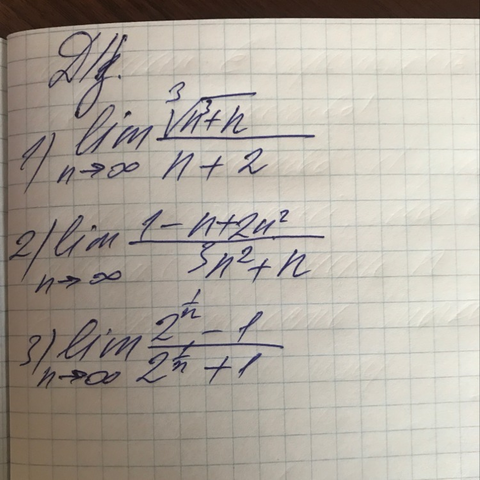 Д/з.
1) lim n→∞ ∛(n³+n) / (n+2)
2) lim n→∞ (1-n+2n²) / (3n²+n)
3) lim n→∞ (2^(1/n) - 1) / (2^(1/n) + 1)